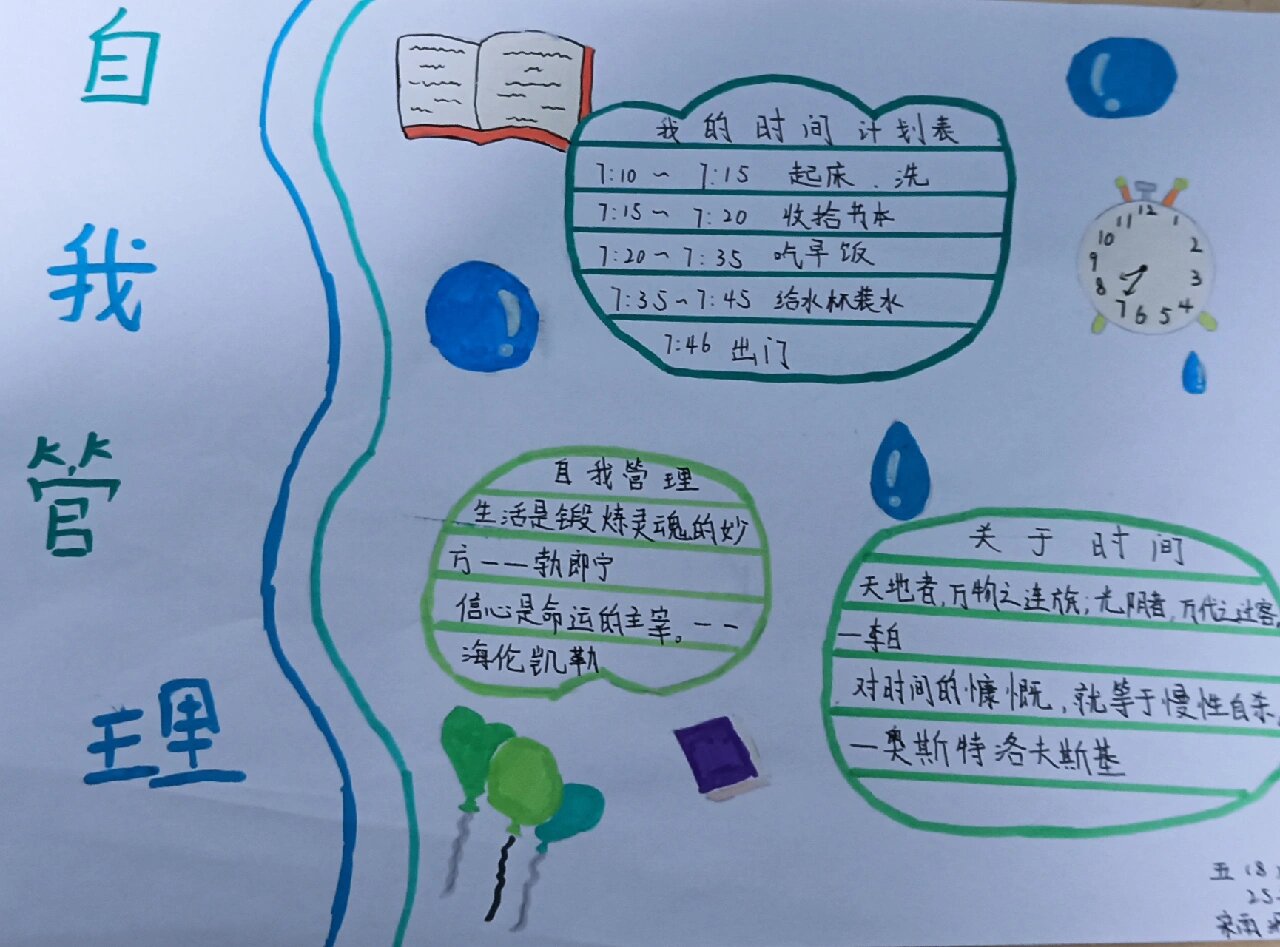 自
我
管
理
我的时间计划表
7:10~ 7:15 起床、洗
7:15~ 7:20 收拾书本
7:20~7:35 吃早饭
7:35~7:45 给水杯装水
7:46 出门
12
1
2
3
4
5
6
7
8
9
10
11
自我管理
生活是锻炼灵魂的妙
方——勃即宁
信心是命运的主宰。——
海伦凯勒
关于时间
天地者,万物之逆旅;光阴者,万代之过客,
—李白
对时间的慷慨,就等于慢性自杀,
—奥斯特洛夫斯基
五(8
25
宋雨